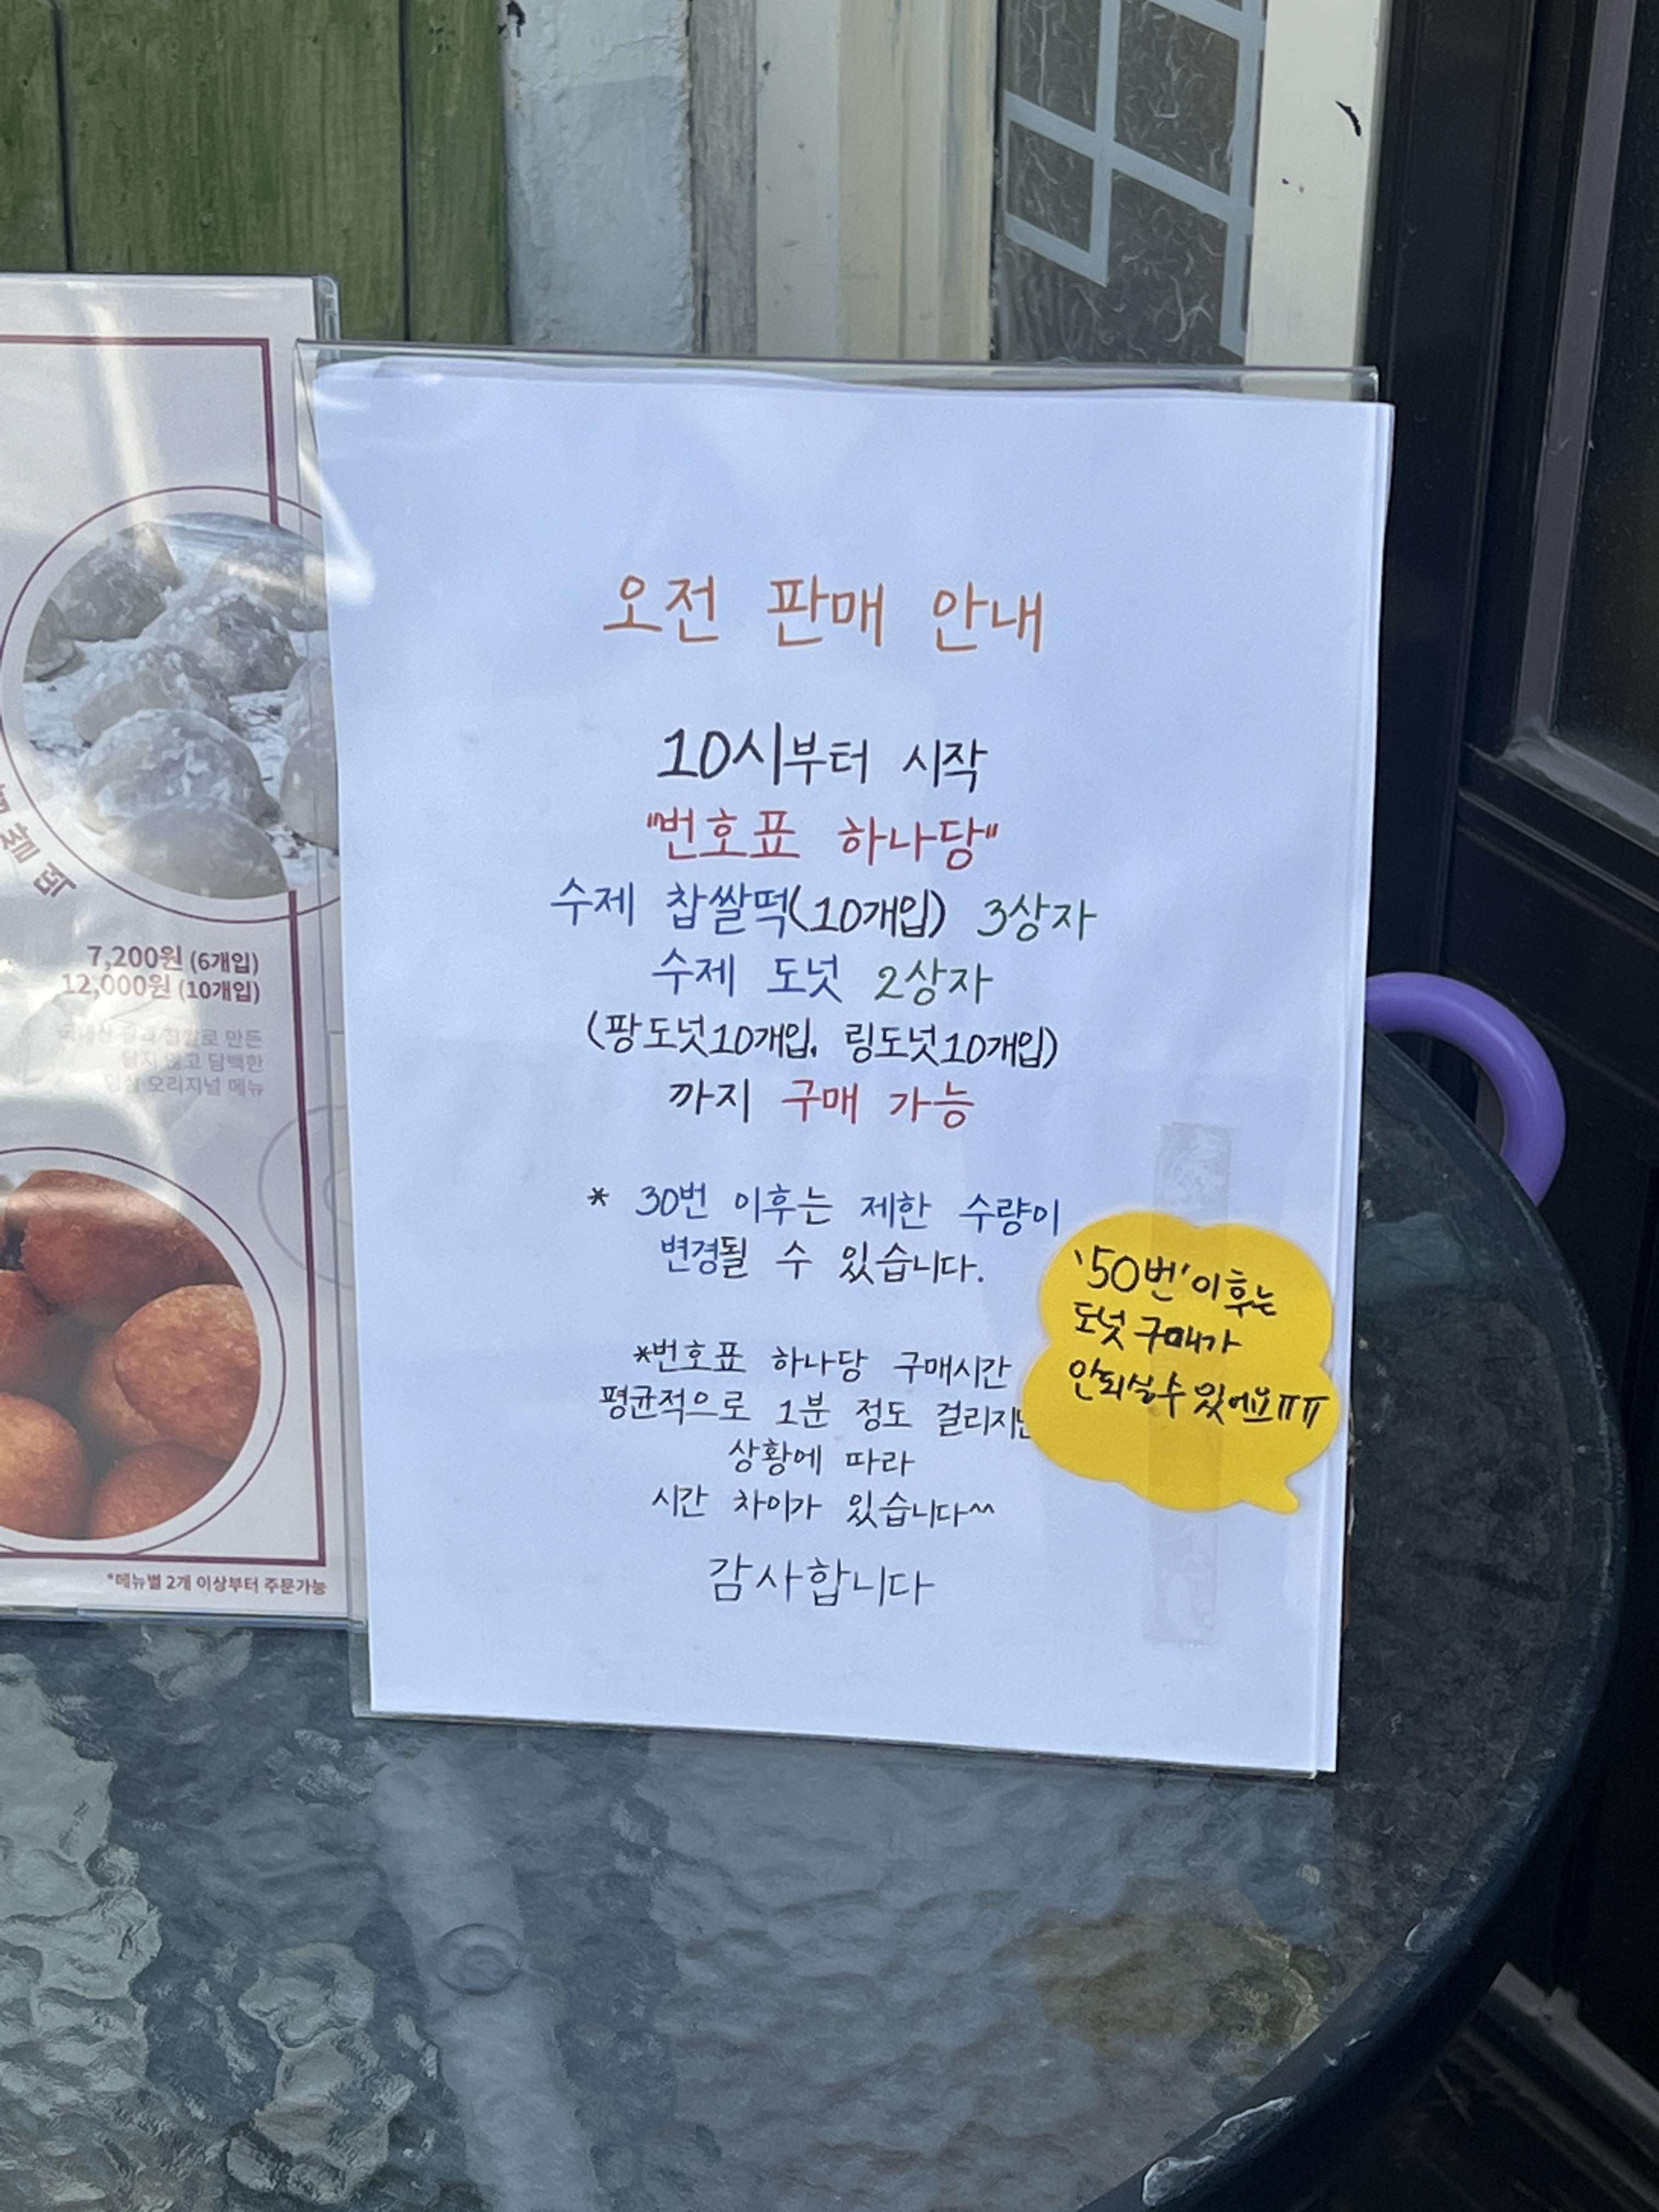 오전 판매 안내
10시부터 시작
"번호표 하나당"
수제 찹쌀떡(10개입) 3상자
수제 도넛 2상자
(팡도넛10개입, 링도넛10개입)
까지 구매 가능
* 30번 이후는 제한 수량이
변경될 수 있습니다.
*번호표 하나당 구매시간
평균적으로 1분 정도 걸리지만
상황에 따라
시간 차이가 있습니다^^
감사합니다
'50번' 이후는
도넛 구매가
안되실수 있어요ㅠㅠ
찹쌀떡
7,200원 (6개입)
12,000원 (10개입)
찹쌀로 만든
않고 담백한
오리지널 메뉴
*메뉴별 2개 이상부터 주문가능